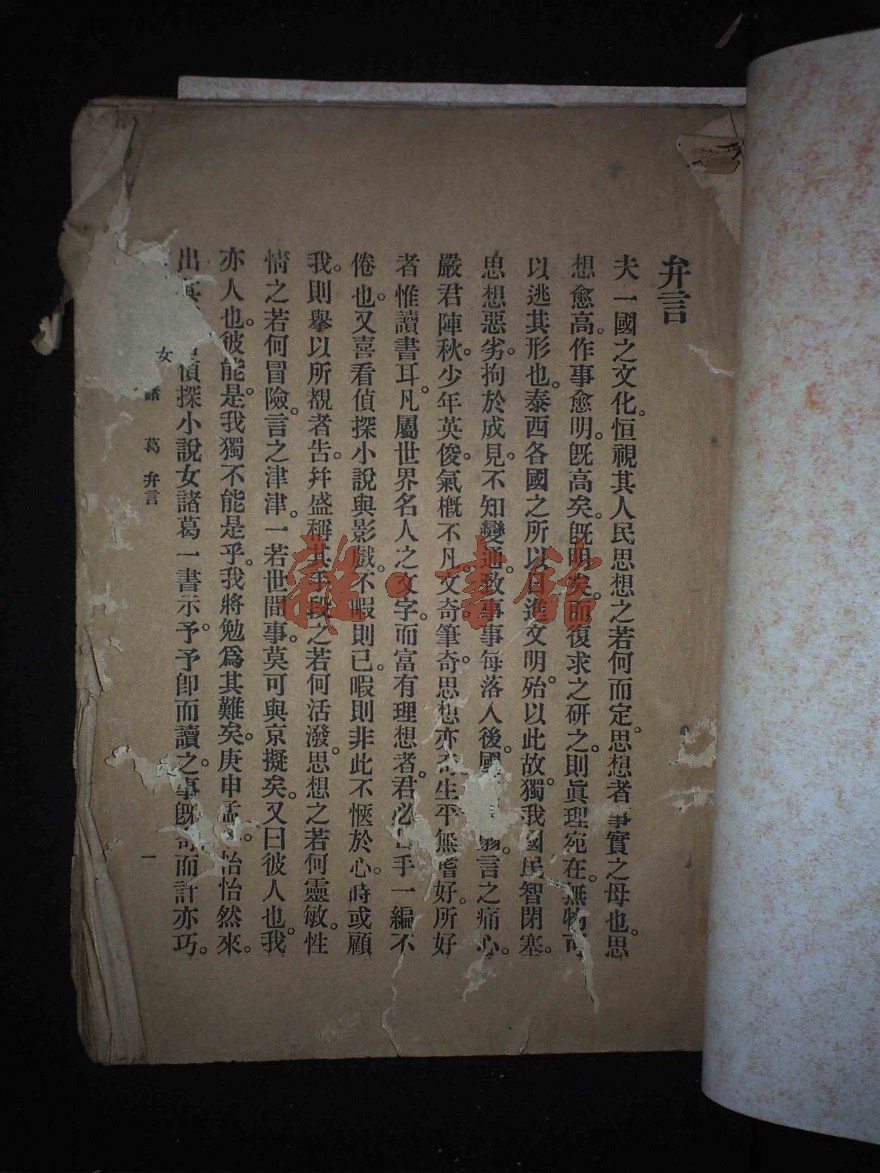 弁言
夫一國之文化。恒視其人民思想之若何而定。思想者事實之母也。思
想愈高。作事愈明。既高矣。既明矣。而復求之研之。則眞理宛在。無物可
以逃其形也。泰西各國之所以日進文明。殆以此故。獨我國民智閉塞。
思想惡劣。拘於成見。不知變通。致事事每落人後。國言之痛心。
嚴君陣秋。少年英俊。氣概不凡。文奇筆奇。思想亦奇。生平無嗜好。所好
者惟讀書耳。凡屬世界名人之文字。而富有理想者。君必手一編不
倦也。又喜看偵探小說與影戲。不暇則已。暇則非此不愜於心。時或顧
我。則舉以所覩者告。幷盛稱其手段之若何活潑。思想之若何靈敏。性
情之若何冒險。言之津津。一若世間事。莫可與京擬矣。又曰彼人也。我
亦人也。彼能是。我獨不能是乎。我將勉爲其難矣。庚申孟怡怡然來。
出偵探小說女諸葛一書示予。予卽而讀之。事既奇而計亦巧。
女諸葛 弁言
一
雜·書館